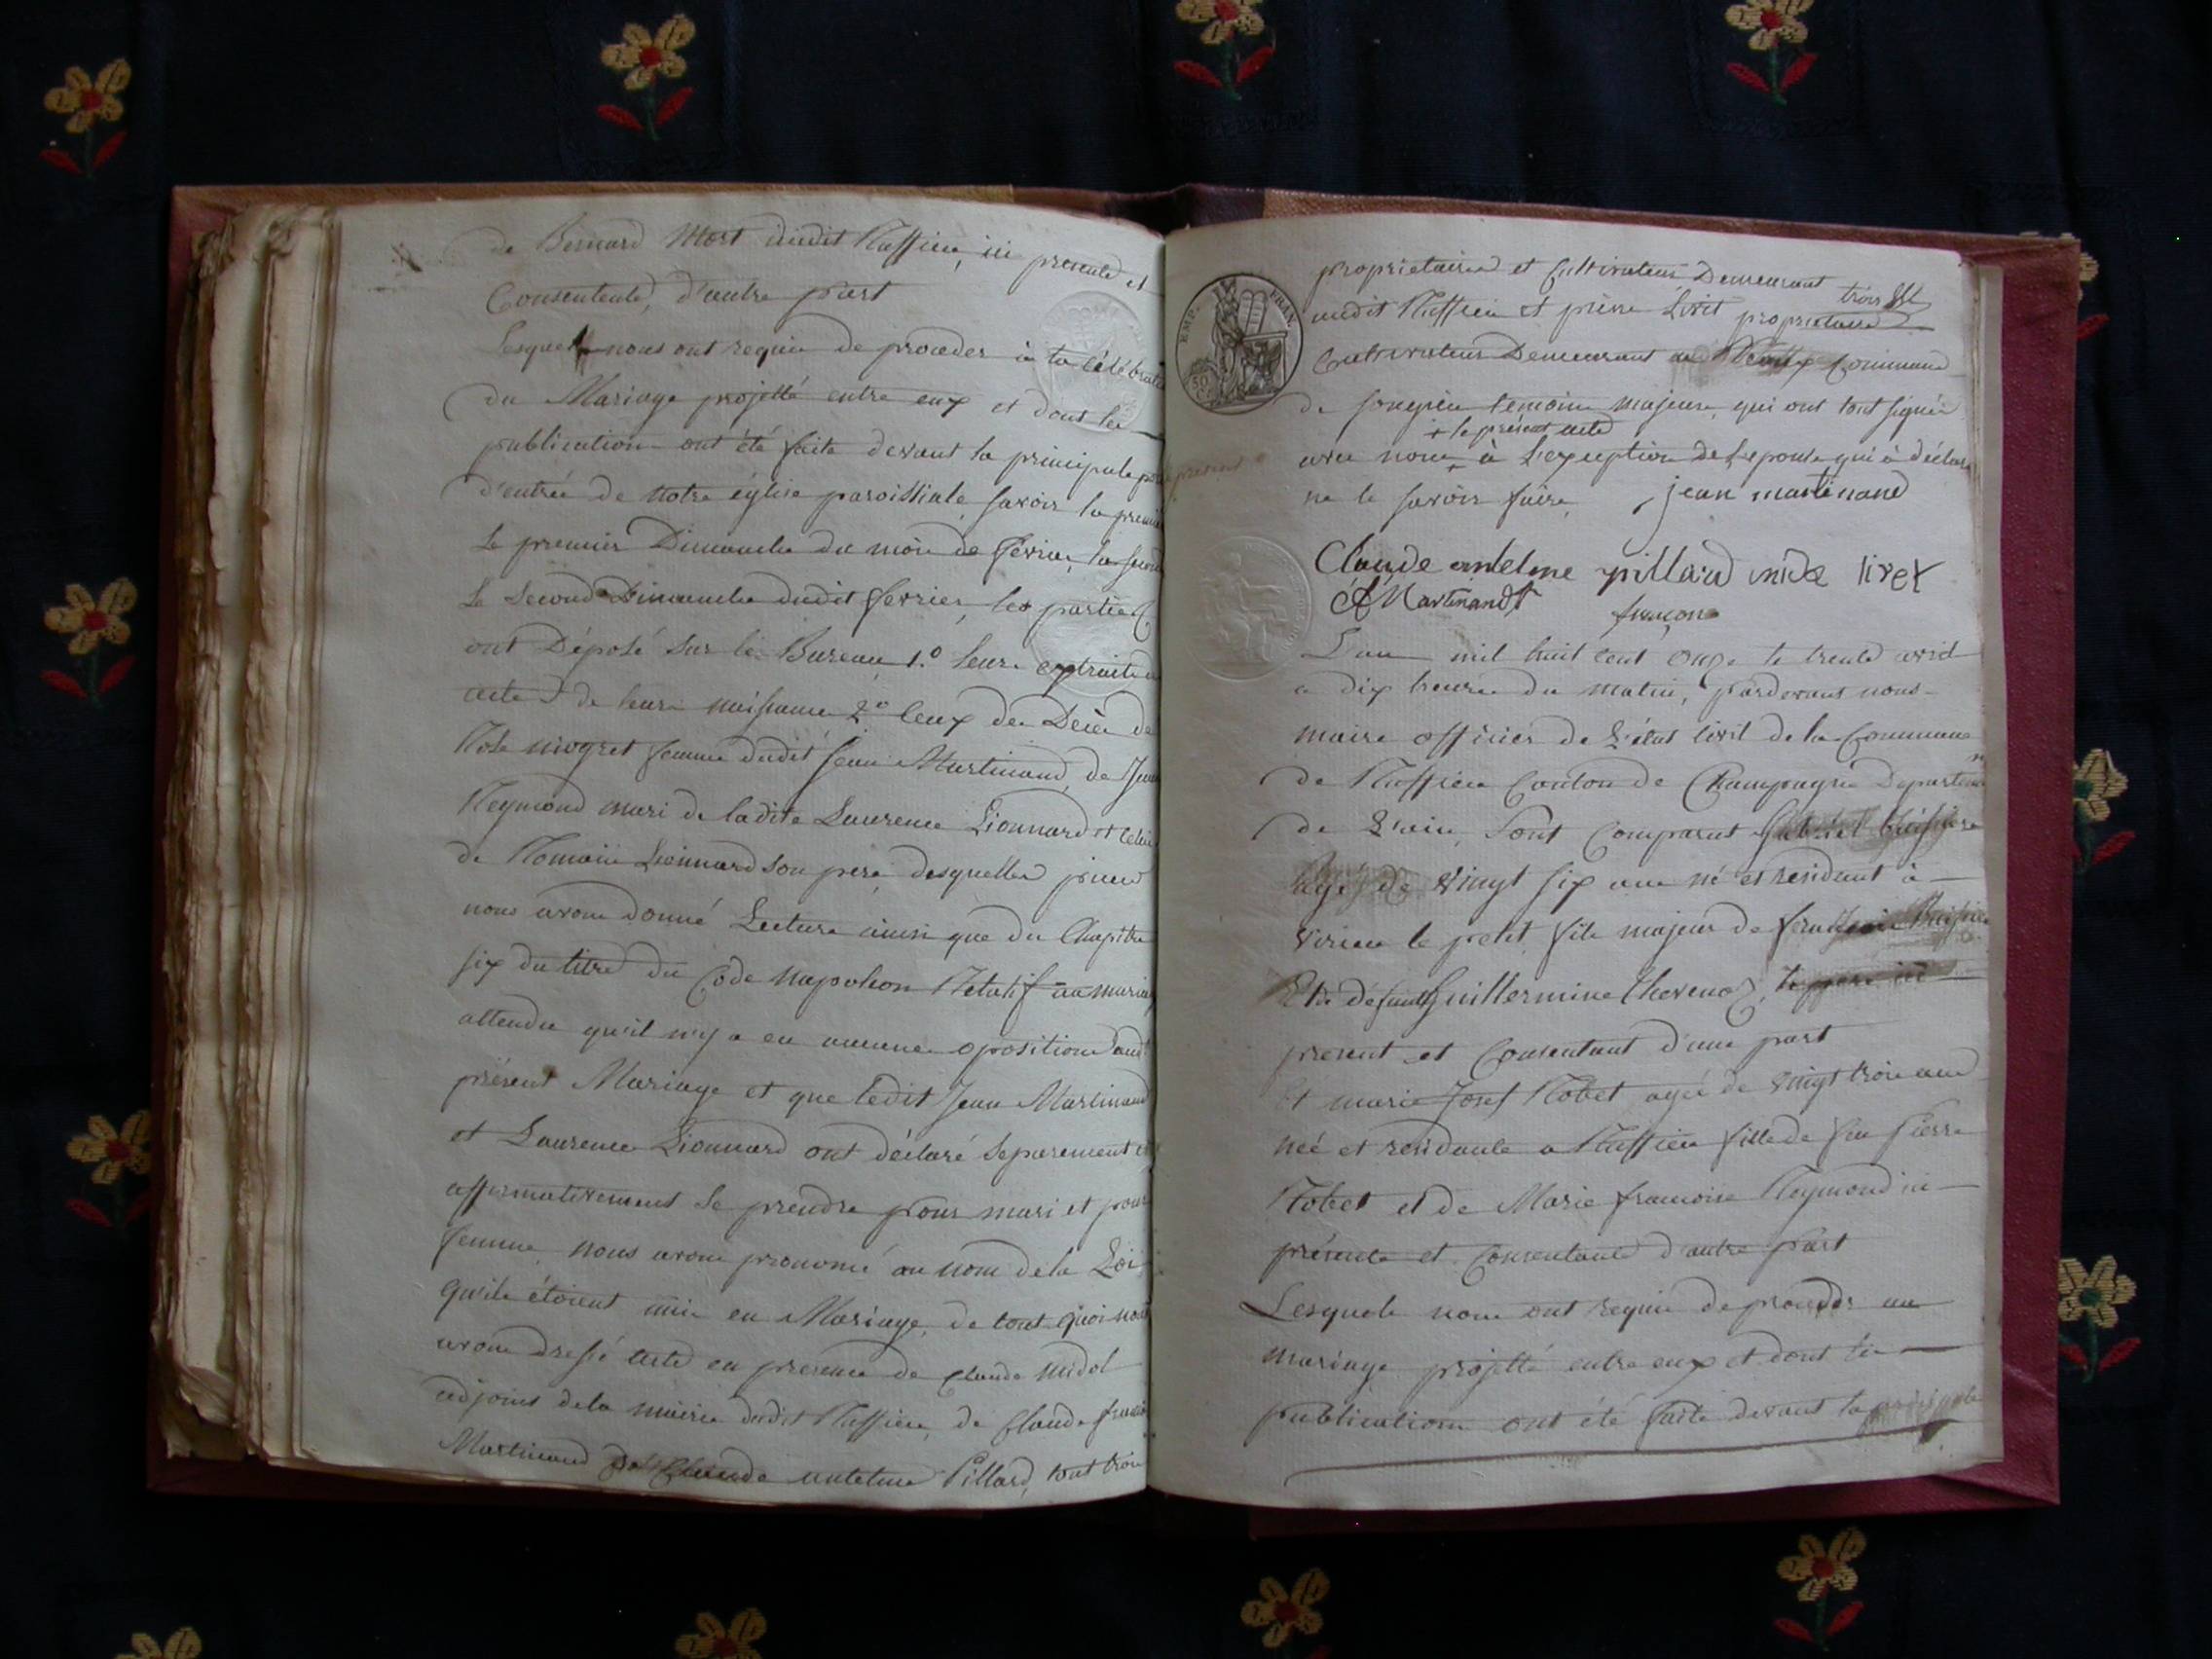 de Bernard Mort dudit Ruffieu, ici presente et
Consentente, d'autre part
Lesquels nous ont requis de proceder à la célébration
du Mariage projetté entre eux et dont les
publications ont été faite devant la principale porte
d'entrée de notre église paroissiale, savoir la premiere
le premier Dimanche du mois de fevrier, la seconde
le second Dimanche dudit fevrier, les parties
ont Déposé sur le Bureau 1.º leurs extraits
acte de leurs naissance 2º ceux de Décès de
Rose niogret femme dudit jean Martinand, de Jean
Reymond mari de ladite Laurence Lionnard et celui
de Romain Lionnard son pere, desquelles pieces
nous avons donné Lecture ainsi que du Chapitre
six du titre du Code Napoleon Relatif au mariage
attendu qu'il n'y a eu aucune oposition audit
présent Mariage et que ledit Jean Martinand
et Laurence Lionnard ont déclaré Separement et
affirmativement se prendre pour mari et pour
femme, nous avons prononcé au nom de la Loi
qu'ils étoient unis en Mariage, de tout quoi nous
avons dressé acte en presence de Claude Midol
adjoint de la mairie dudit Ruffieu, de Claude françois
Martinand de Claude antelme Pillard, tout trois
EMP. FRAN.
50 C.
proprietaires et Cultivateurs Demeurant
audit Ruffieu et pierre Livet proprietaire
Cultivateur Demeurant au Commune
de songieu temoins majeurs, qui ont tout signés
+ le présent acte
avec nous à l'exception de l'epouse qui à déclaré
ne le savoir faire, jean martinand
Claude antelme pillard midol livet
Martinand
françois
L'an mil huit cent onze le trente avril
a dix heures du matin, pardevant nous
maire officier de L'état Civil de la Commune
de Ruffieu Canton de Champagne Departem
de L'ain, sont Comparut Gabriel
agé de vingt six ans né et résident à
virieu le petit fils majeur de
Et de défunte Guillermine Chevenoz, le pere ici
present et Consentant d'une part
Et marie Josef Robet agée de vingt trois ans
neé et residante a Ruffieu fille de feu Pierre
Robet et de Marie francoise Reymond ici
présente et Consentante d'autre part
Lesquels nous ont requis de proceder au
mariage projetté entre eux et dont les
publications ont été faite devant la principale